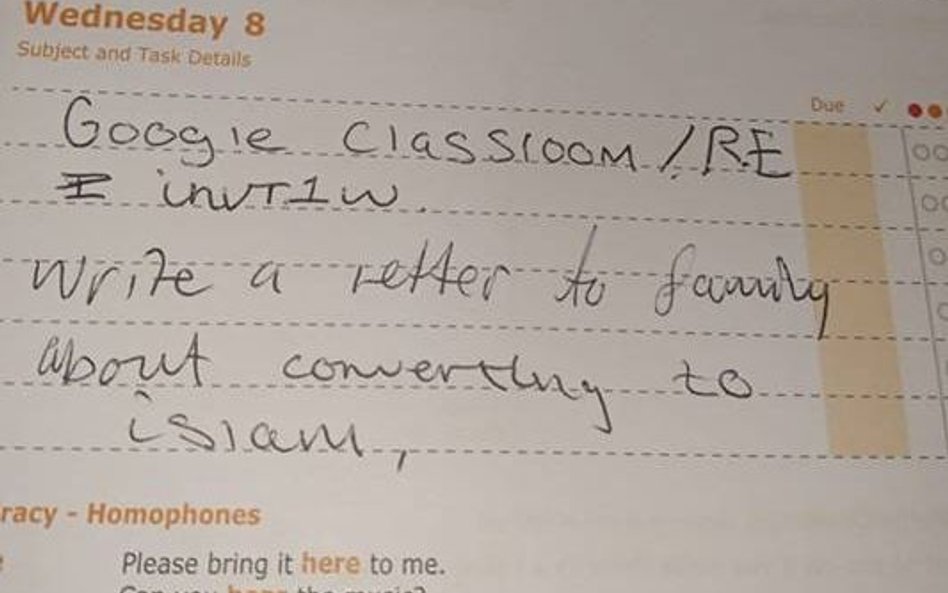 Wednesday 8
Subject and Task Details
Due ✓
Google Classroom / RE
write a letter to family
about converting to
islam,
racy - Homophones
Please bring it here to me.
Can you hear the music?